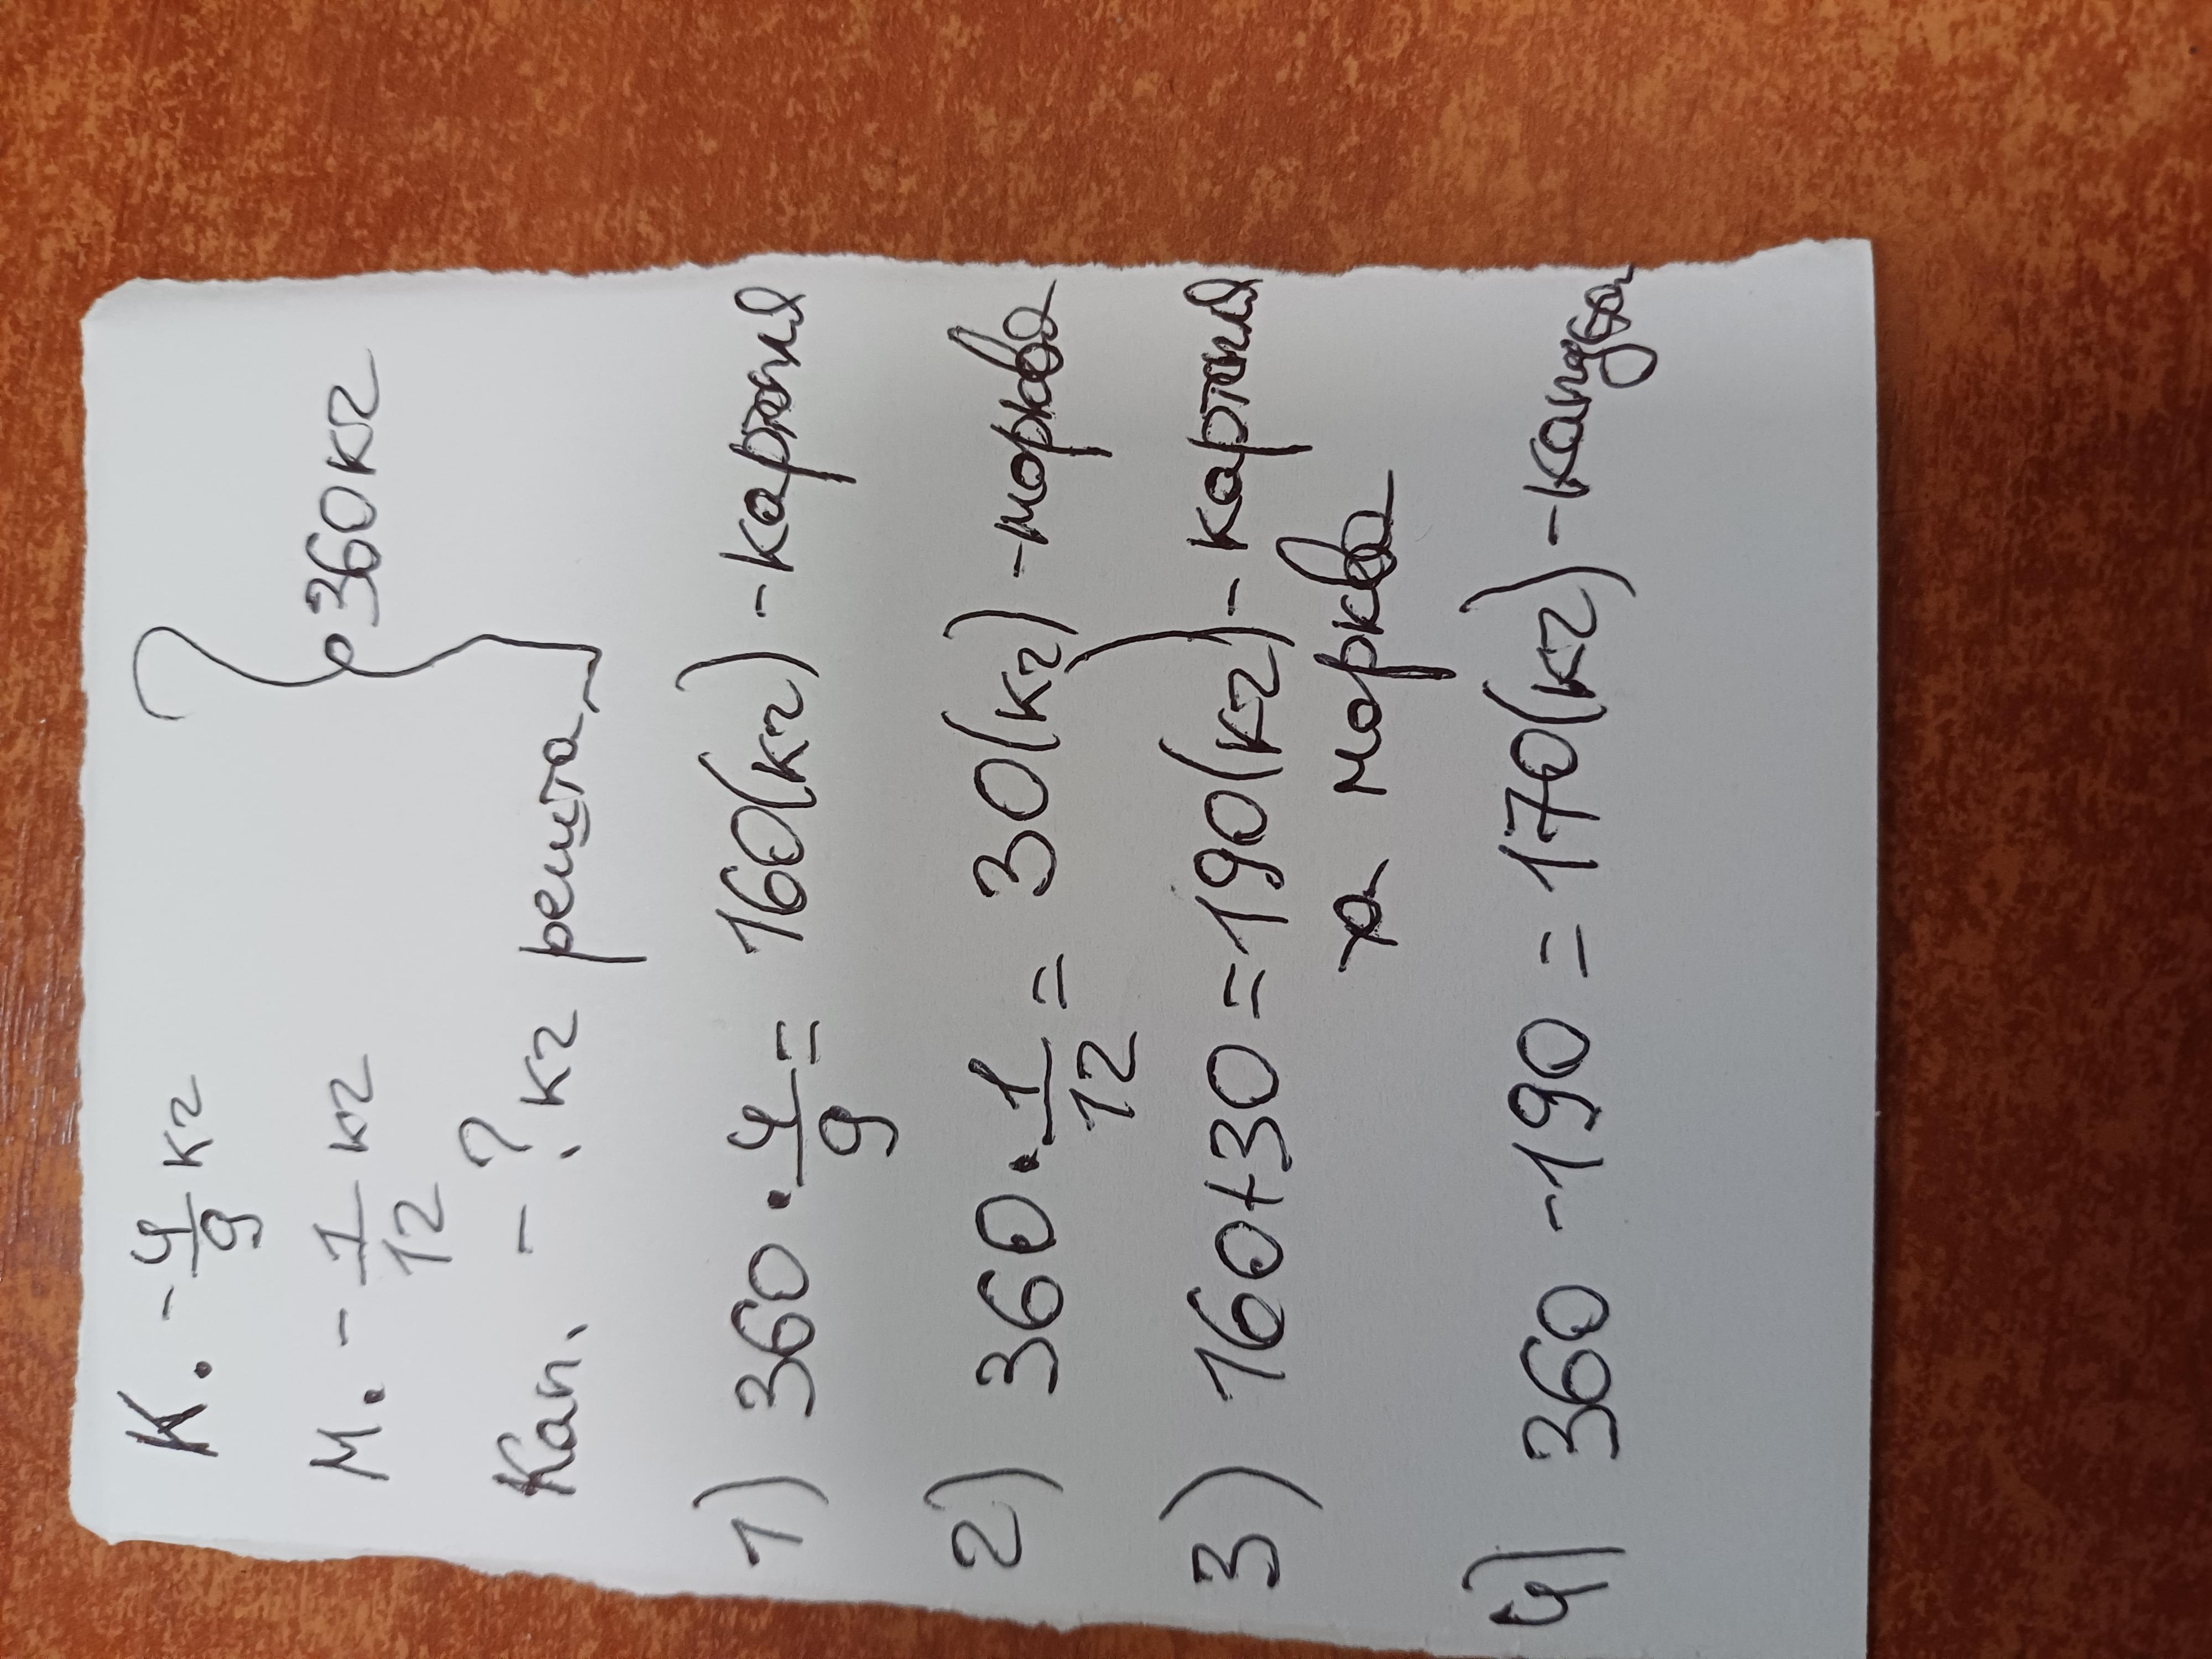 К. - 4/9 кг
М. - 1/12 кг } 360кг
Кап. - ? кг решта
1) 360 · 4/9 = 160(кг) - картопля
2) 360 · 1/12 = 30(кг) - морква
3) 160+30 = 190(кг) - картопля
та морква
4) 360 - 190 = 170(кг) - капуста